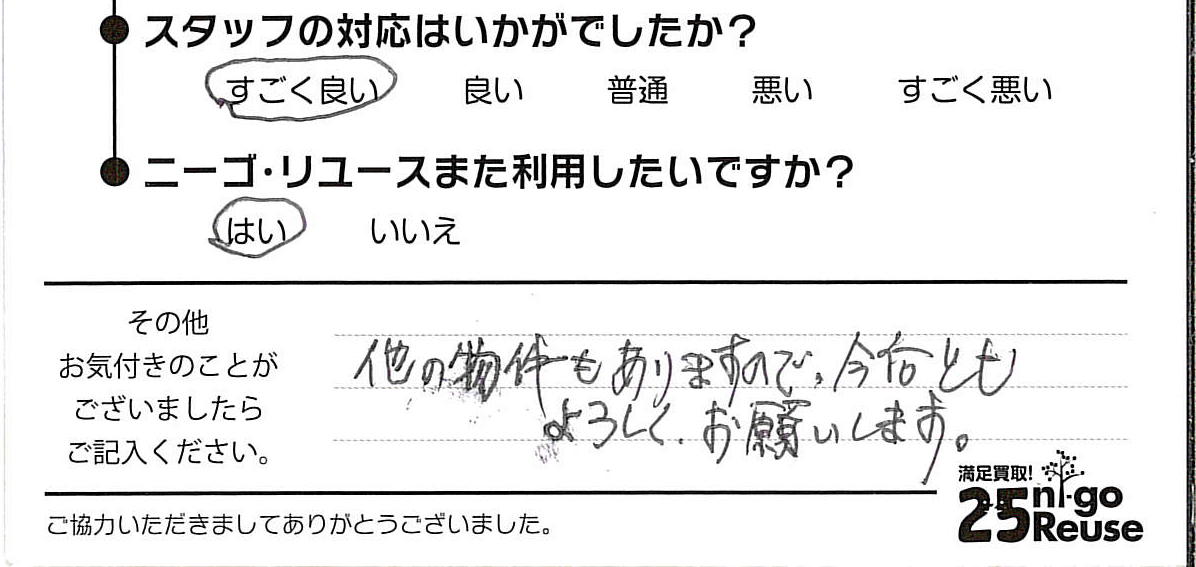 スタッフの対応はいかがでしたか？
すごく良い 良い 普通 悪い すごく悪い
ニーゴ・リユースまた利用したいですか？
はい いいえ
その他
お気付きのことが
ございましたら
ご記入ください。
他の物件もありますので、今后とも
よろしく、お願いします。
満足買取!
25 ni-go
Reuse
ご協力いただきましてありがとうございました。